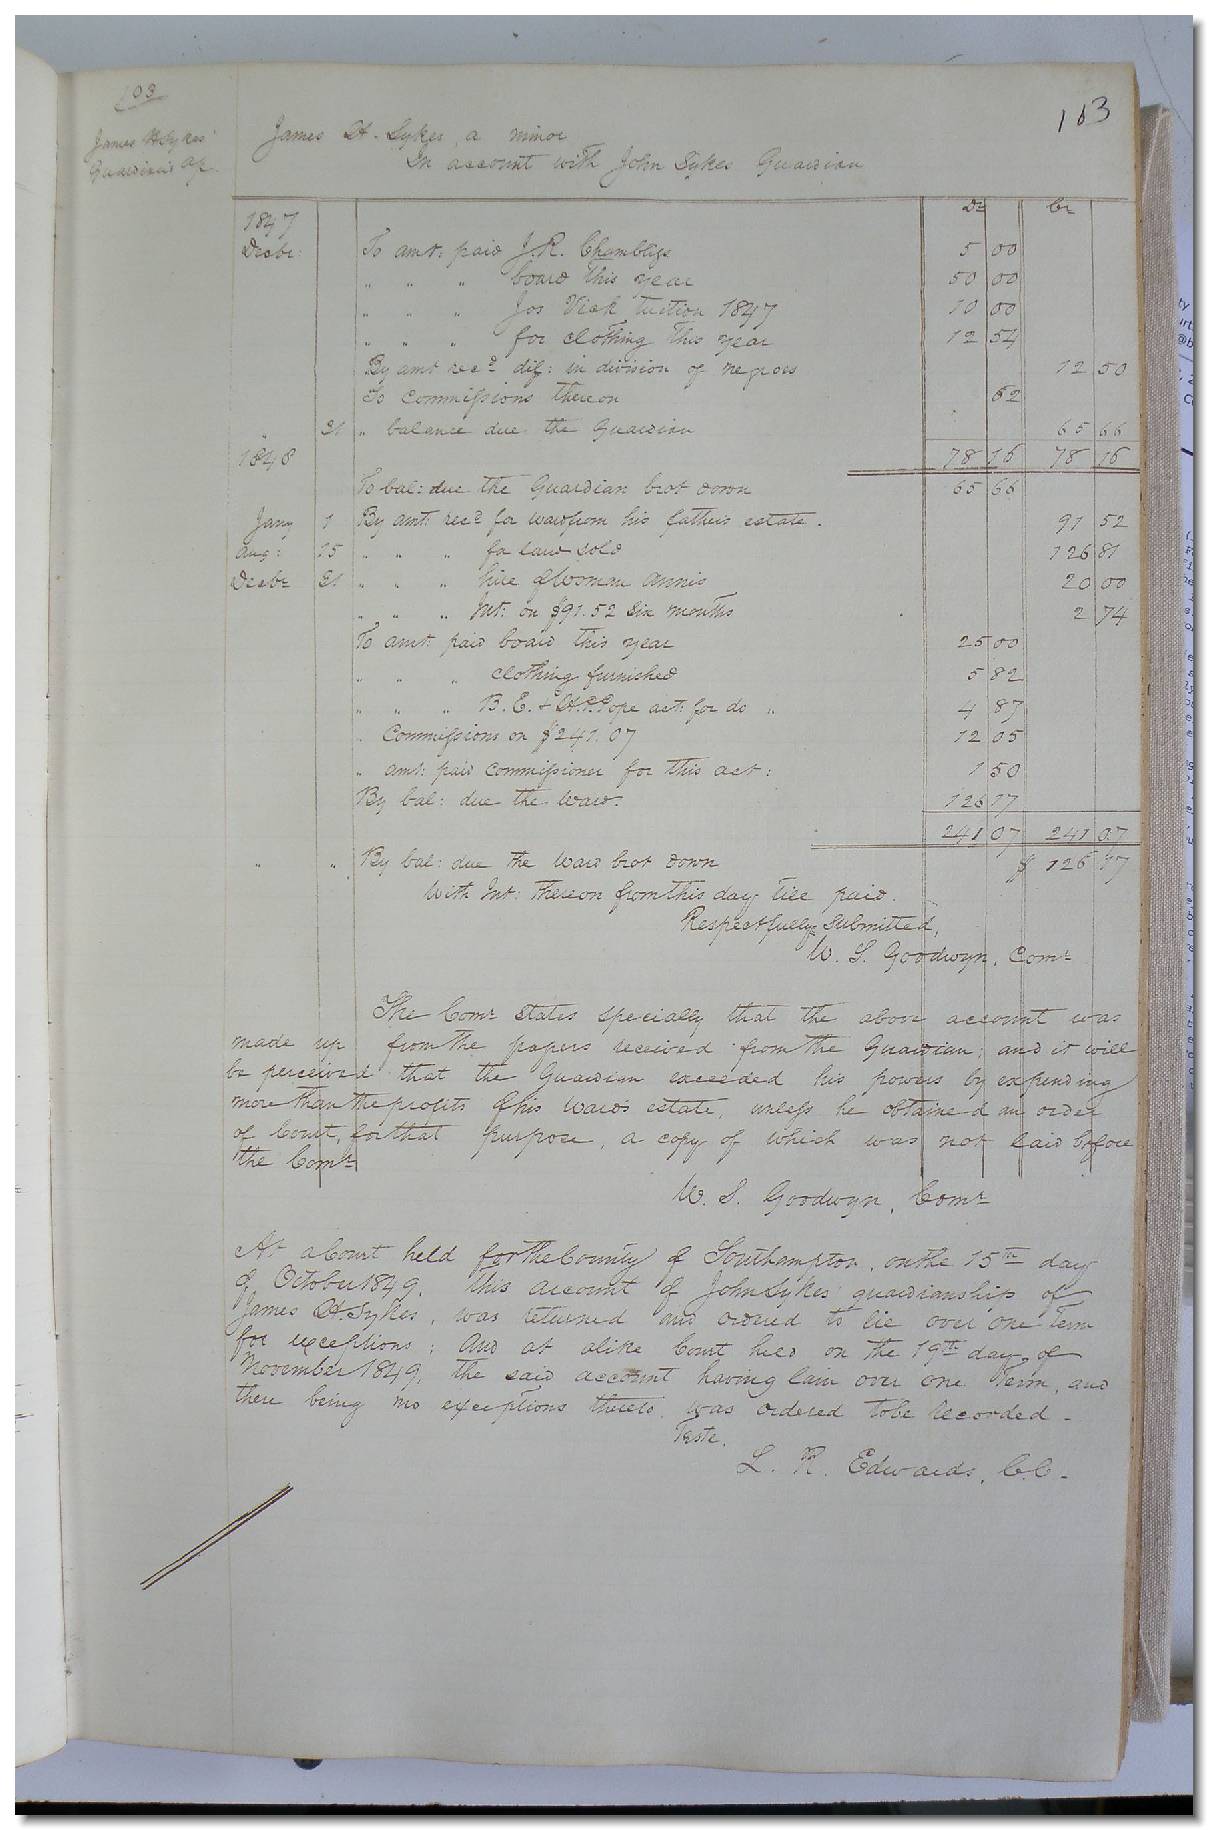 103
103
James H Sykes'
Guardian's a/c
James H. Sykes, a minor
In account with John Sykes Guardian
Dr Cr
1847
Decbr: To amt: paid J. R. Chambliss 5 00
" " " board this year 50 00
" " " Jos Vick tuition 1847 10 00
" " " for clothing this year 12 54
By amt recd dif: in division of negroes 12 50
To Commissions thereon 62
" 31 " balance due the Guardian 65 66
1848 78 16 78 16
To bal: due the Guardian brot down 65 66
Jany 1 By amt: recd for ward from his father's estate. 91 52
Aug: 15 " " " for land sold 126 81
Decbr 31 " " " hire of woman Annis 20 00
" " " Int: on $91.52 six months 2 74
To amt: paid board this year 25 00
" " " clothing furnished 5 82
" " " B. E. & H. P. Pope act: for do " 4 87
" Commissions on $241.07 12 05
" amt: paid commissioner for this act: 1 50
By bal: due the ward. 126 17
241 07 241 07
" " By bal: due the ward brot down $ 126 17
With Int: thereon from this day till paid.
Respectfully Submitted,
W. S. Goodwyn, Comr
The Comr states specially that the above account was
made up from the papers received from the Guardian; and it will
be perceived that the Guardian exceeded his powers by expending
more than the profits of his ward's estate, unless he obtained an order
of Court, for that purpose, a copy of which was not laid before
the Comr
W. S. Goodwyn, Comr
At a Court held for the County of Southampton, on the 15th day
of October 1849. This account of John Sykes' guardianship of
James H. Sykes, was returned and ordered to lie over one term
for exceptions; And at a like Court held on the 19th day of
November 1849, the said account having lain over one term, and
there being no exceptions thereto, was ordered to be recorded -
Teste,
L. R. Edwards, C.C.